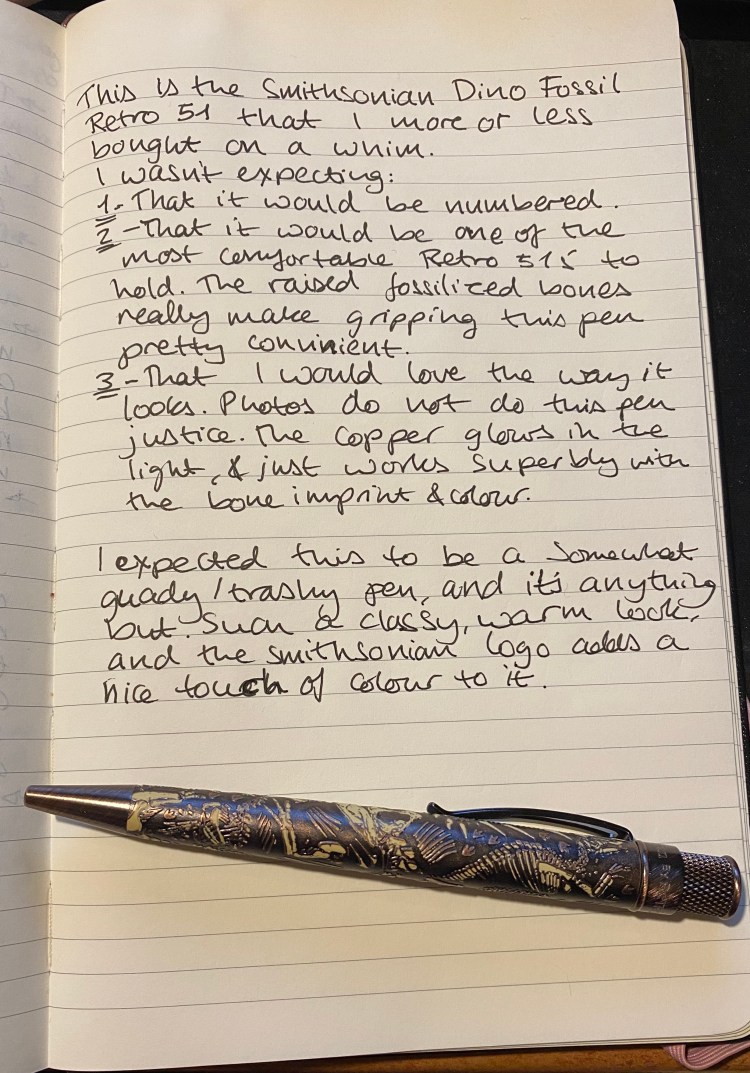 This is the Smithsonian Dino Fossil
Retro 51 that I more or less
bought on a whim.
I wasn't expecting:
1-That it would be numbered.
2-That it would be one of the
most comfortable Retro 51s to
hold. The raised fossilized bones
really make gripping this pen
pretty convinient.
3-That I would love the way it
looks. Photos do not do this pen
justice. The copper glows in the
light, & just works superbly with
the bone imprint & colour.
I expected this to be a somewhat
guady/trashy pen, and it's anything
but. Such a classy, warm look,
and the smithsonian logo adds a
nice touch of colour to it.